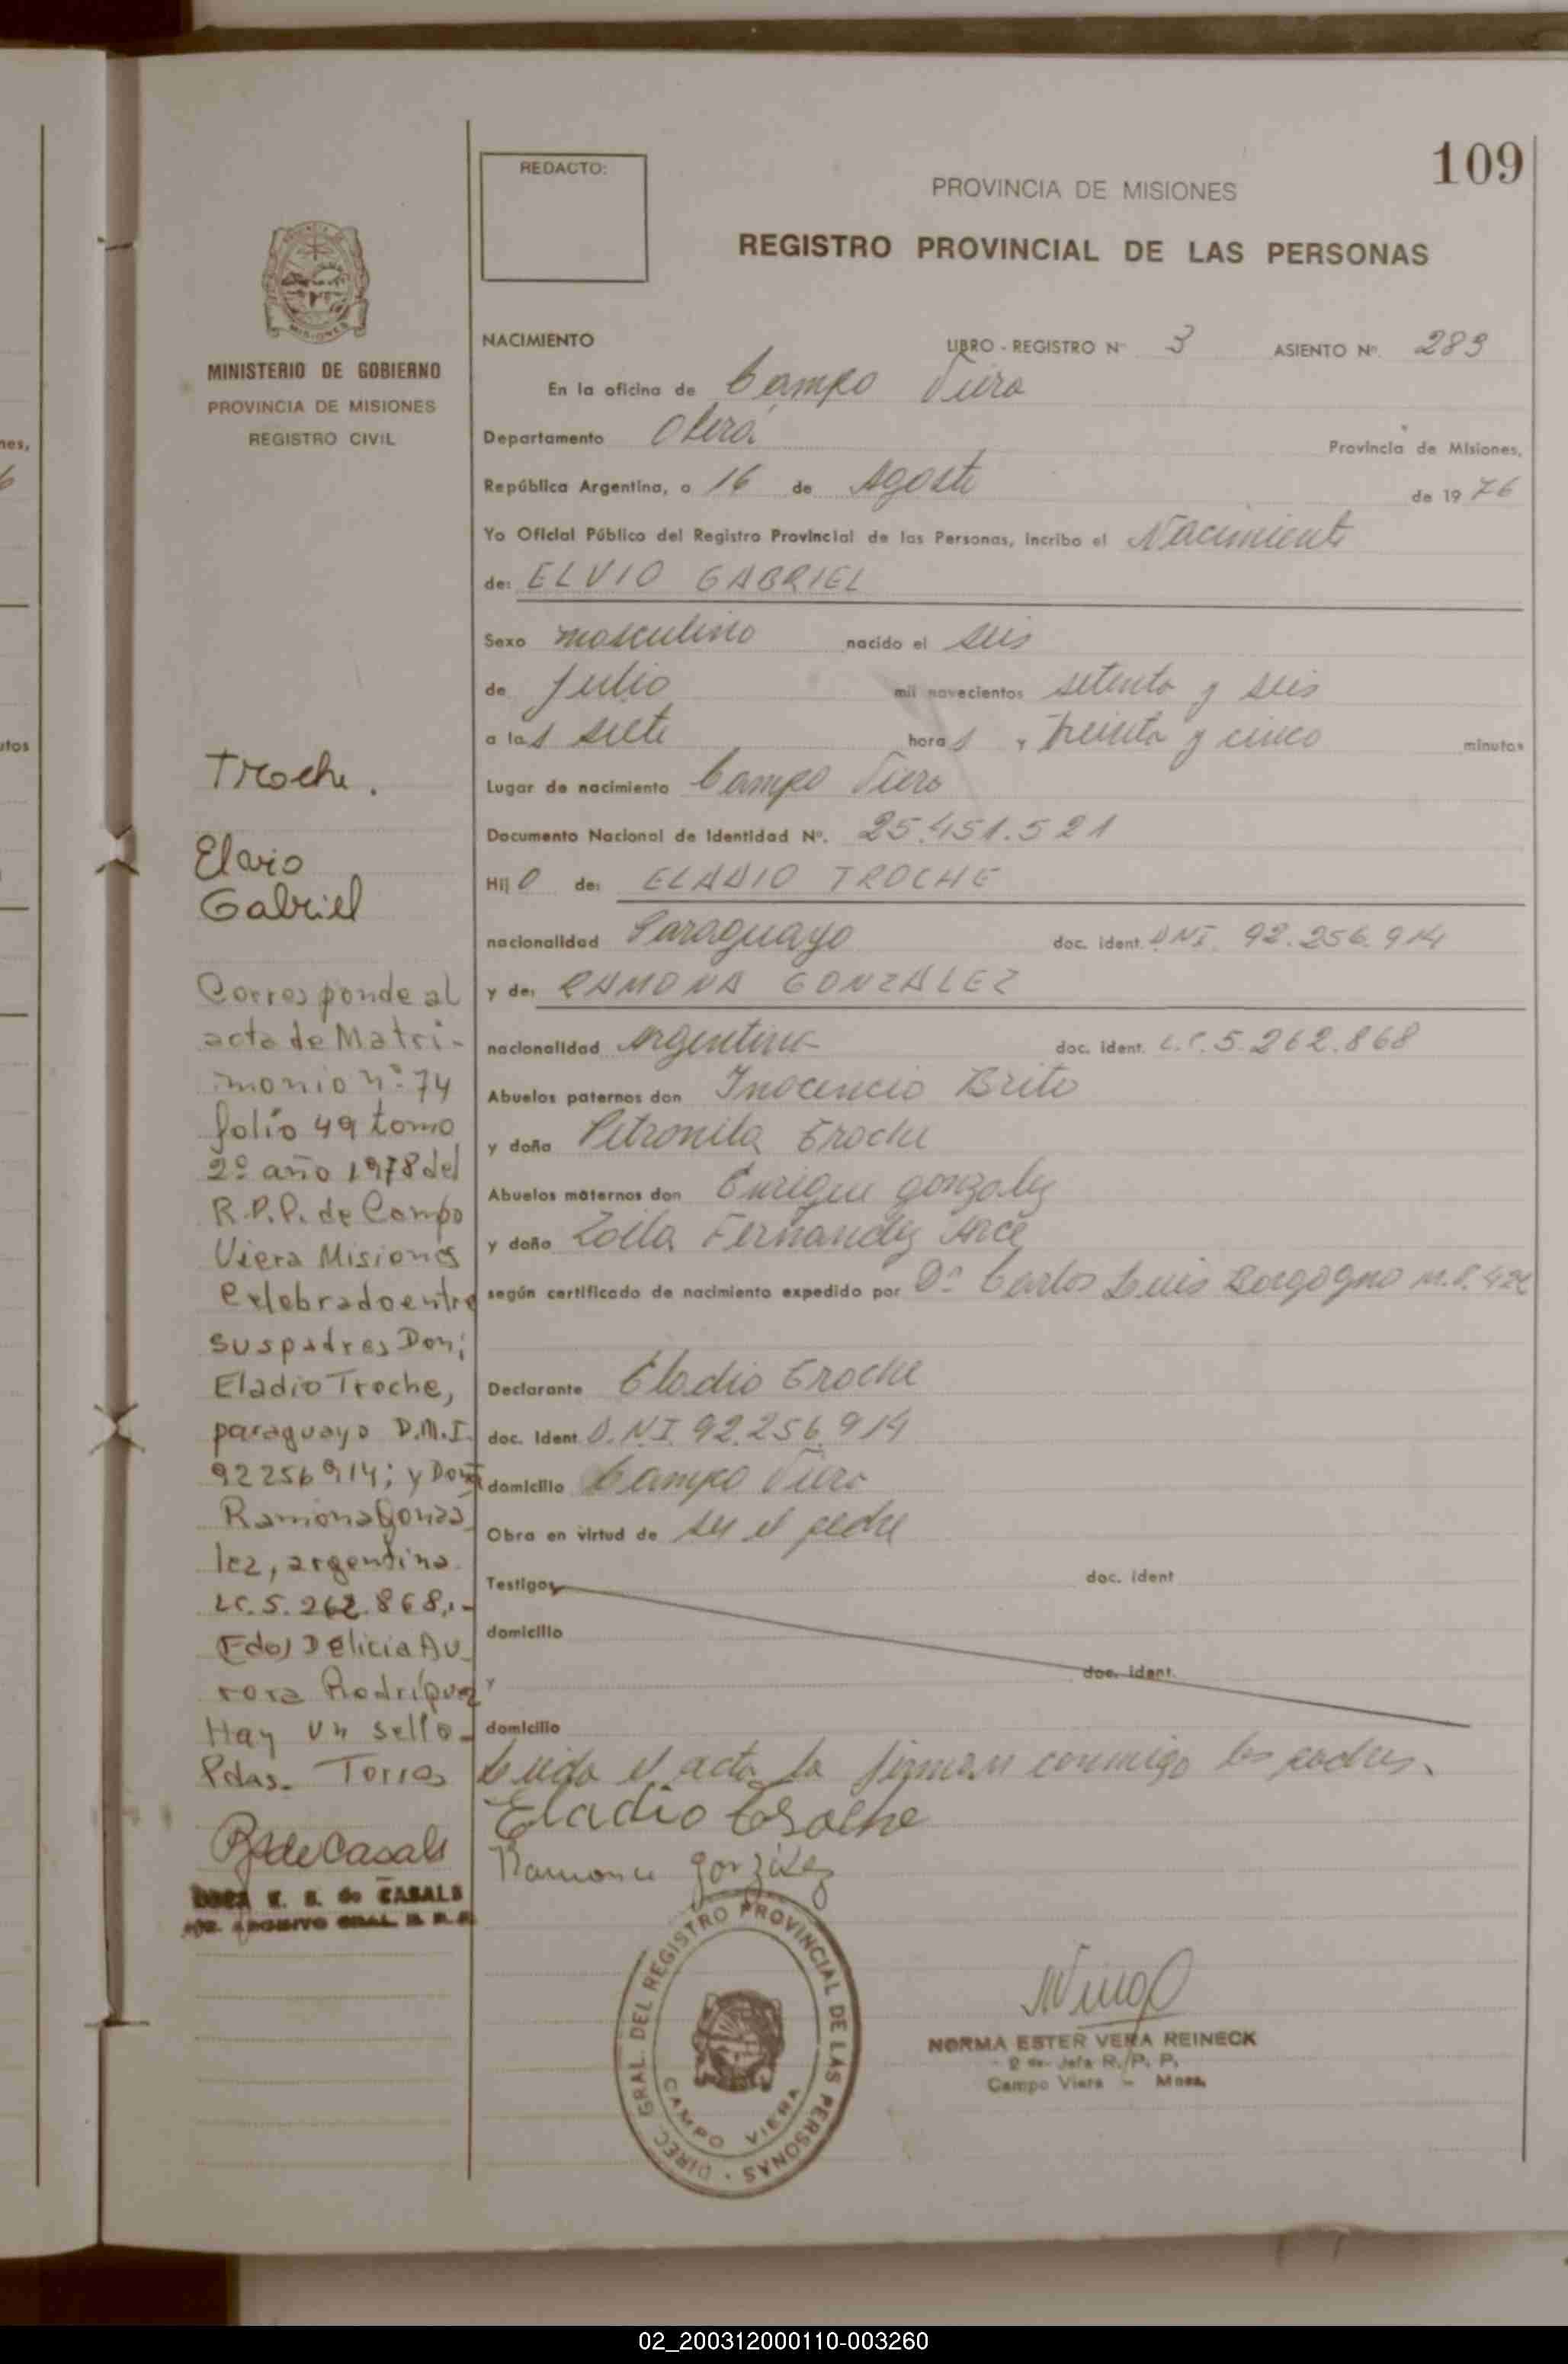 109
REDACTO:
PROVINCIA DE MISIONES
REGISTRO PROVINCIAL DE LAS PERSONAS
MINISTERIO DE GOBIERNO
PROVINCIA DE MISIONES
REGISTRO CIVIL
NACIMIENTO LIBRO - REGISTRO Nº 3 ASIENTO Nº. 289
En la oficina de Campo Viera
Departamento Oberá Provincia de Misiones,
República Argentina, a 16 de Agosto de 1976
Yo Oficial Público del Registro Provincial de las Personas, incribo el Nacimiento
de: ELVIO GABRIEL
Sexo masculino nacido el seis
de Julio mil novecientos setenta y seis
a las siete horas y treinta y cinco minutos
Lugar de nacimiento Campo Viera
Documento Nacional de Identidad Nº. 25.451.521
Hijo de: ELADIO TROCHE
nacionalidad Paraguayo doc. ident. DNI. 92.256.914
y de: RAMONA GONZALEZ
nacionalidad Argentina doc. ident. L.C. 5.262.868
Abuelos paternos don Inocencio Brito
y doña Petronila Troche
Abuelos maternos don Enrique Gonzalez
y doña Zoila Fernandez Arce
según certificado de nacimiento expedido por Dr. Carlos Luis Borgogno M.P.
Declarante Eladio Troche
doc. Ident. D.N.I. 92.256.914
domicilio Campo Viera
Obra en virtud de ser el padre
Testigos doc. ident
domicilio
doc. ident.
y
domicilio
Leída el acta la firman conmigo los padres.
Eladio Troche
Ramona Gonzalez
Troche.
Elvio
Gabriel
Corresponde al
acta de Matri-
monio nº 74
folio 49 tomo
2º año 1978 del
R.P.P. de Campo
Viera Misiones
celebrado entre
sus padres Don;
Eladio Troche,
paraguayo D.N.I.
92256914; y Doña
Ramona Gonza
lez, argentina.
LC. 5.262.868,.-
(Fdo) Delicia Au
rora Rodríguez
Hay un sello-
Pdas. Torres
de Casals
de CASALS
DIREC. GRAL. DEL REGISTRO PROVINCIAL DE LAS PERSONAS
CAMPO VIERA
NORMA ESTER VERA REINECK
Jefa R. P. P.
Campo Viera - Mnes.
02_200312000110-003260